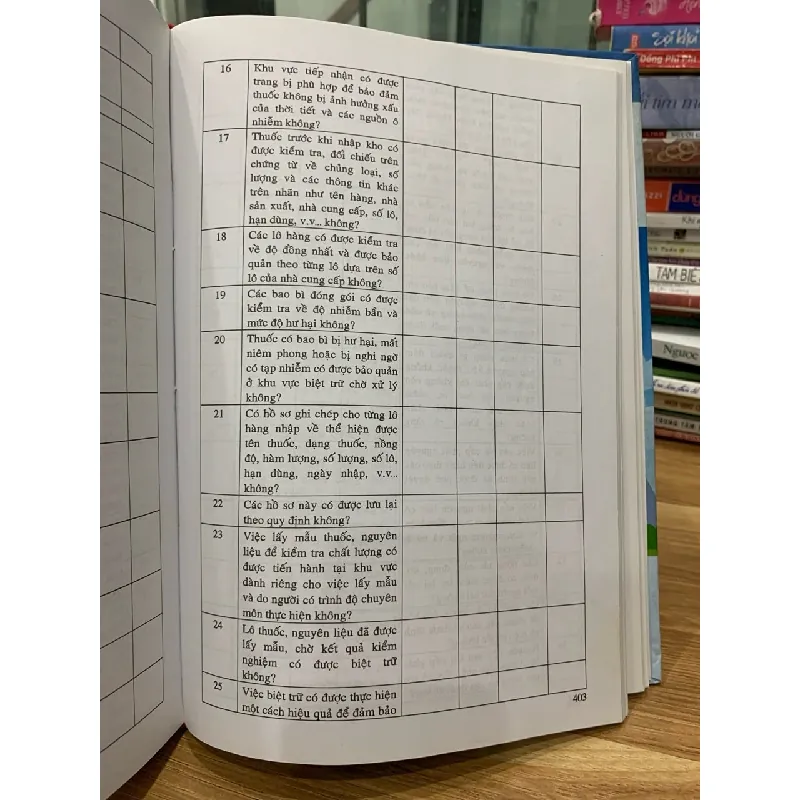 16 Khu vực tiếp nhận có được
trang bị phù hợp để bảo đảm
thuốc không bị ảnh hưởng xấu
của thời tiết và các nguồn ô
nhiễm không?
17 Thuốc trước khi nhập kho có
được kiểm tra, đối chiếu trên
chứng từ về chủng loại, số
lượng và các thông tin khác
trên nhãn như tên hàng, nhà
sản xuất, nhà cung cấp, số lô,
hạn dùng, v.v... không?
18 Các lô hàng có được kiểm tra
về độ đồng nhất và được bảo
quản theo từng lô dựa trên số
lô của nhà cung cấp không?
19 Các bao bì đóng gói có được
kiểm tra về độ nhiễm bẩn và
mức độ hư hại không?
20 Thuốc có bao bì bị hư hại, mất
niêm phong hoặc bị nghi ngờ
có tạp nhiễm có được bảo quản
ở khu vực biệt trữ chờ xử lý
không?
21 Có hồ sơ ghi chép cho từng lô
hàng nhập về thể hiện được
tên thuốc, dạng thuốc, nồng
độ, hàm lượng, số lượng, số lô,
hạn dùng, ngày nhập, v.v...
không?
22 Các hồ sơ này có được lưu lại
theo quy định không?
23 Việc lấy mẫu thuốc, nguyên
liệu để kiểm tra chất lượng có
được tiến hành tại khu vực
dành riêng cho việc lấy mẫu
và do người có trình độ chuyên
môn thực hiện không?
24 Lô thuốc, nguyên liệu đã được
lấy mẫu, chờ kết quả kiểm
nghiệm có được biệt trữ
không?
25 Việc biệt trữ có được thực hiện
một cách hiệu quả để đảm bảo
403
TẠM BIỆ